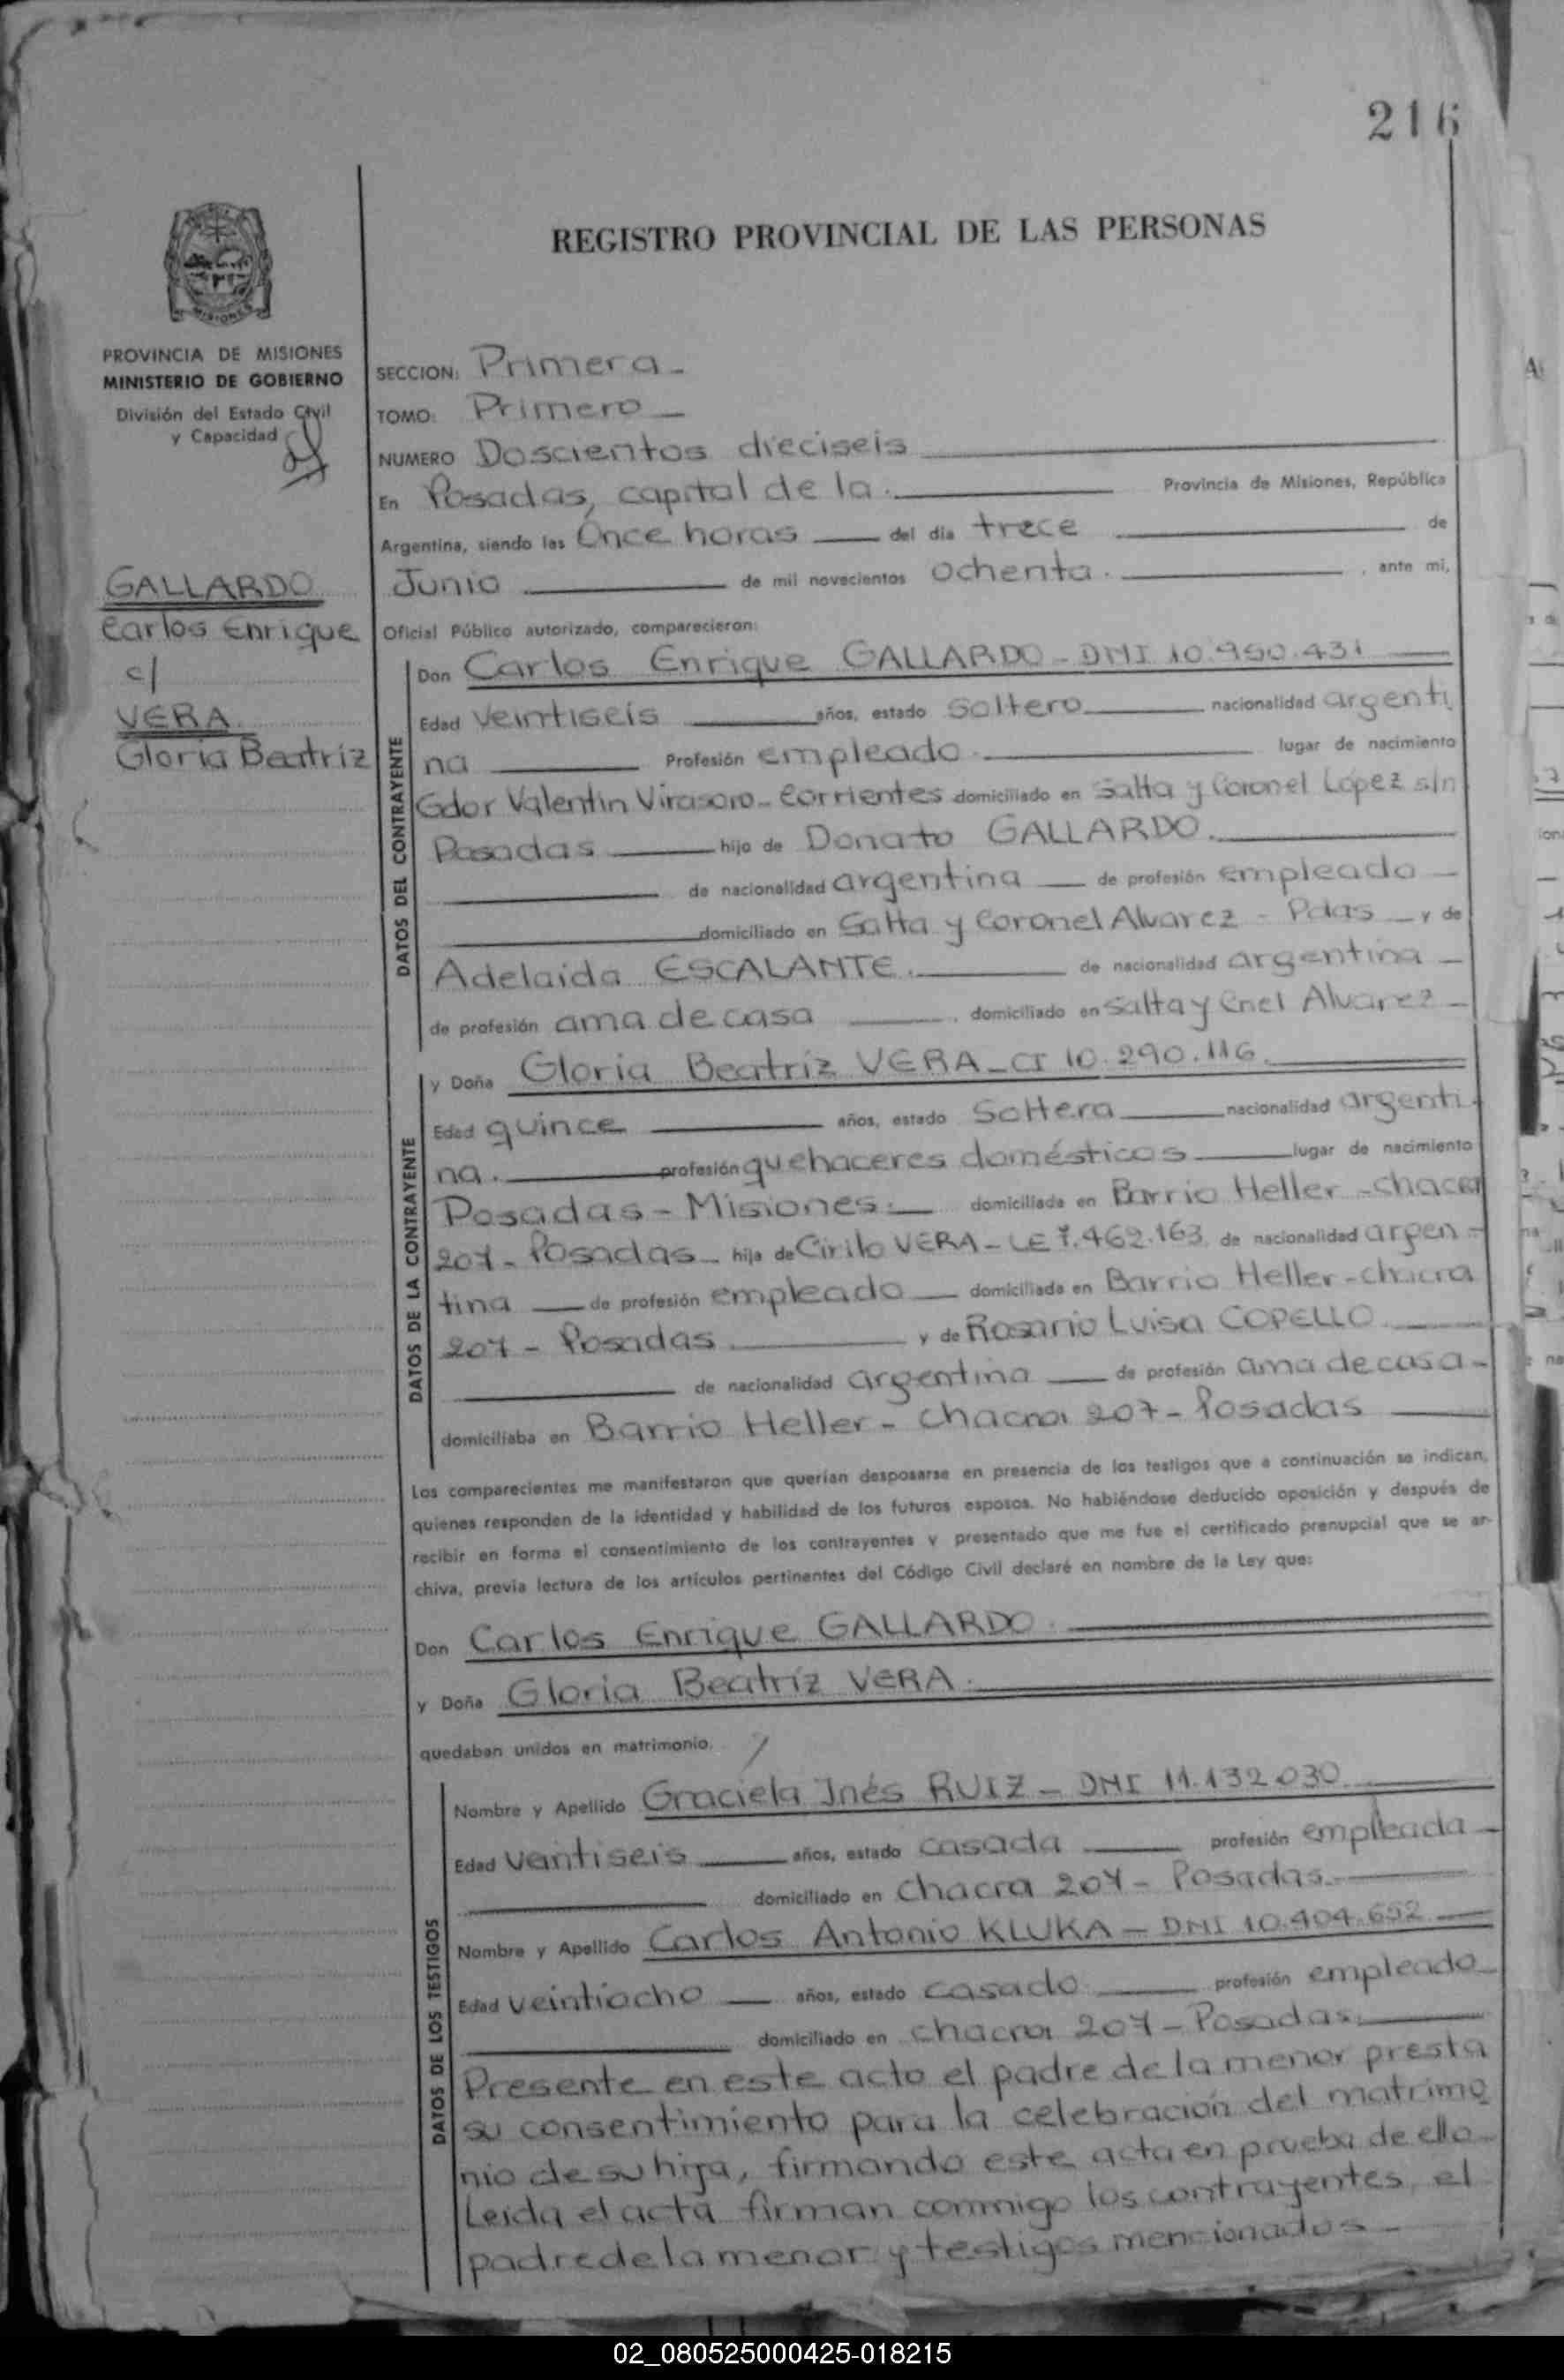 216
REGISTRO PROVINCIAL DE LAS PERSONAS
MISIONES
PROVINCIA DE MISIONES
MINISTERIO DE GOBIERNO
División del Estado Civil
y Capacidad
GALLARDO
Carlos Enrique
c/
VERA
Gloria Beatriz
SECCION: Primera -
TOMO: Primero -
NUMERO Doscientos dieciseis
En Posadas, capital de la. Provincia de Misiones, República
Argentina, siendo las Once horas del día trece de
Junio de mil novecientos ochenta. , ante mi,
Oficial Público autorizado, comparecieron:
DATOS DEL CONTRAYENTE
Don Carlos Enrique GALLARDO - DNI 10.950.431
Edad veintiseis años, estado soltero nacionalidad argenti
na Profesión empleado. lugar de nacimiento
Gdor Valentin Virasoro - Corrientes domiciliado en Salta y Coronel López s/n
Posadas hijo de Donato GALLARDO.
de nacionalidad argentina de profesión empleado -
domiciliado en Salta y Coronel Alvarez - Pdas y de
Adelaida ESCALANTE. de nacionalidad argentina -
de profesión ama de casa . domiciliado en Salta y Cnel Alvarez -
DATOS DE LA CONTRAYENTE
y Doña Gloria Beatriz VERA - CI 10.290.116.
Edad quince años, estado Soltera nacionalidad argenti-
na. profesión quehaceres domésticos lugar de nacimiento
Posadas - Misiones. domiciliada en Barrio Heller - chacra
207 - Posadas - hija de Cirilo VERA - LE 7.462.163 de nacionalidad argen-
tina de profesión empleado domiciliada en Barrio Heller - chacra
207 - Posadas y de Rosario Luisa COPELLO
de nacionalidad argentina de profesión ama de casa -
domiciliaba en Barrio Heller - Chacra 207 - Posadas
Los comparecientes me manifestaron que querían desposarse en presencia de los testigos que a continuación se indican,
quienes responden de la identidad y habilidad de los futuros esposos. No habiéndose deducido oposición y después de
recibir en forma el consentimiento de los contrayentes y presentado que me fue el certificado prenupcial que se ar-
chiva, previa lectura de los artículos pertinentes del Código Civil declaré en nombre de la Ley que:
Don Carlos Enrique GALLARDO.
y Doña Gloria Beatriz VERA.
quedaban unidos en matrimonio.
DATOS DE LOS TESTIGOS
Nombre y Apellido Graciela Inés RUIZ - DNI 11.132.030
Edad veintiseis años, estado casada profesión empleada -
domiciliado en Chacra 207 - Posadas.
Nombre y Apellido Carlos Antonio KLUKA - DNI 10.404.652
Edad veintiocho años, estado casado profesión empleado -
domiciliado en chacra 207 - Posadas.
Presente en este acto el padre de la menor presta
su consentimiento para la celebración del matrimo
nio de su hija, firmando este acta en prueba de ello -
Leída el acta firman conmigo los contrayentes, el
padre de la menor y testigos mencionados -
02_080525000425-018215